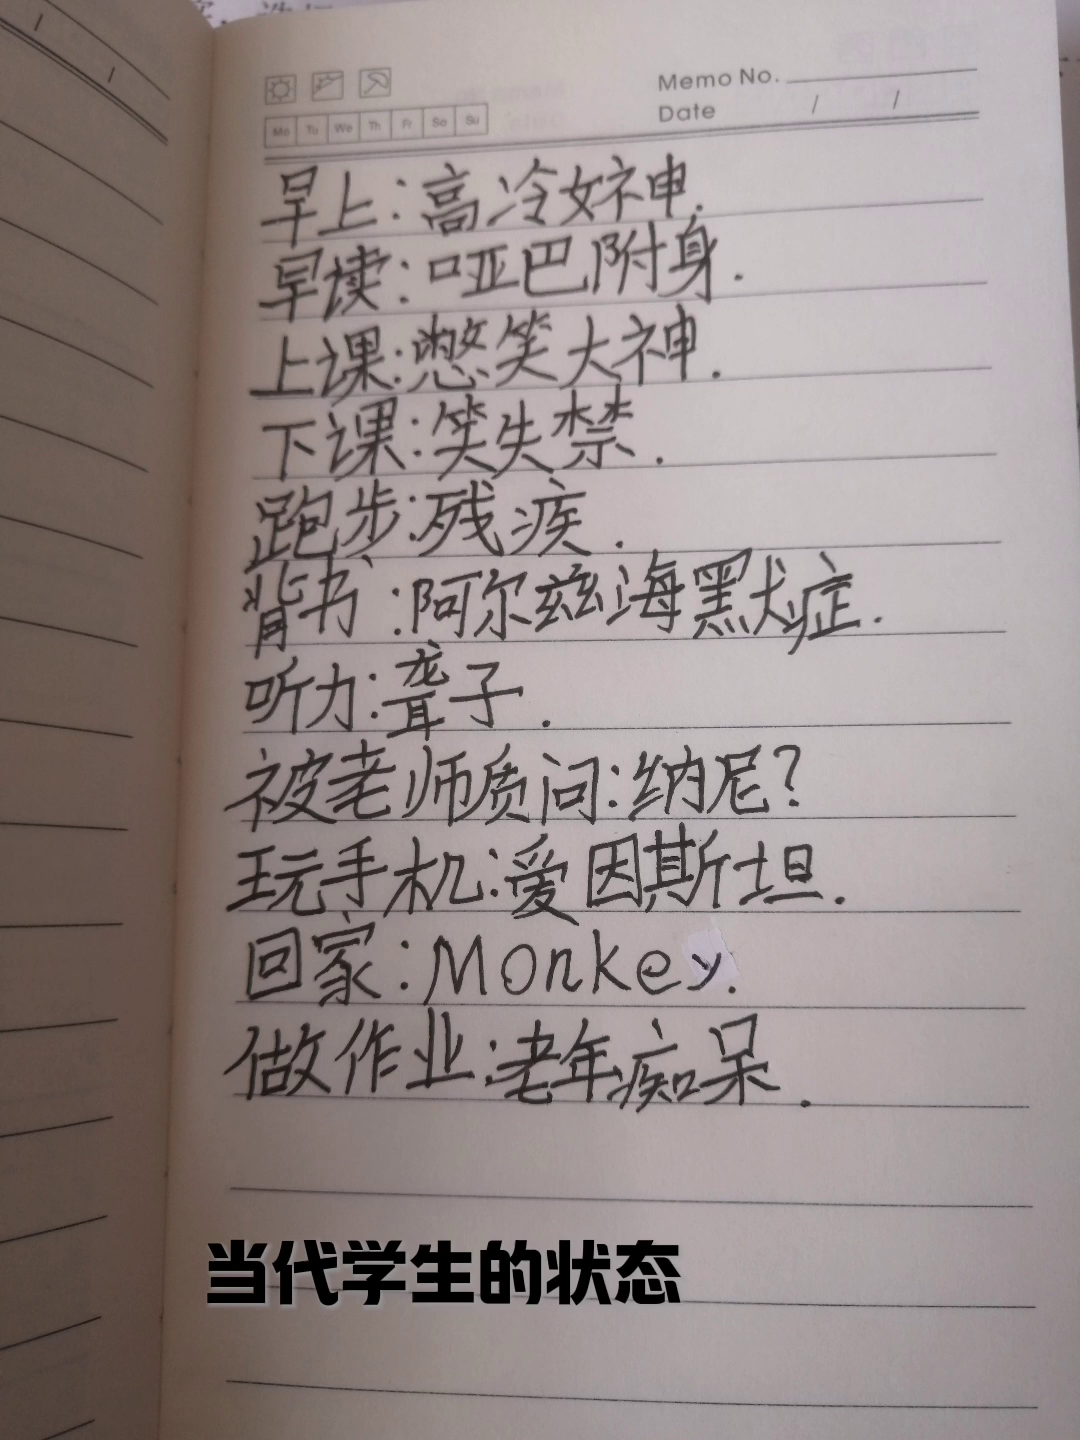 Memo No.
Date / /
Mo Tu We Th Fr Sa Su
早上:高冷女神.
早读:哑巴附身.
上课:憋笑大神.
下课:笑失禁.
跑步:残疾.
背书:阿尔兹海默症.
听力:聋子.
被老师质问:纳尼?
玩手机:爱因斯坦.
回家:Monkey.
做作业:老年痴呆.
当代学生的状态